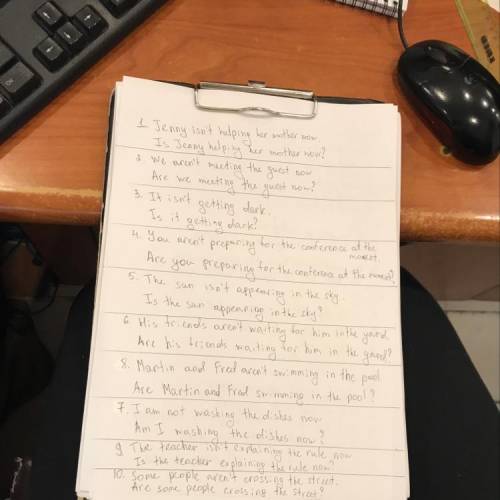 1. Jenny isn't helping her mother now
Is Jenny helping her mother now?
2. We aren't meeting the guest now
Are we meeting the guest now?
3. It isn't getting dark.
Is it getting dark?
4. You aren't preparing for the conference at the
moment.
Are you preparing for the conference at the moment?
5. The sun isn't appearing in the sky.
Is the sun appearing in the sky?
6. His friends aren't waiting for him in the yard
Are his friends waiting for him in the yard?
8. Martin and Fred aren't swimming in the pool
Are Martin and Fred swimming in the pool?
7. I am not washing the dishes now
Am I washing the dishes now?
9 The teacher isn't explaining the rule now
Is the teacher explaining the rule now?
10. Some people aren't crossing the street.
Are some people crossing the street?